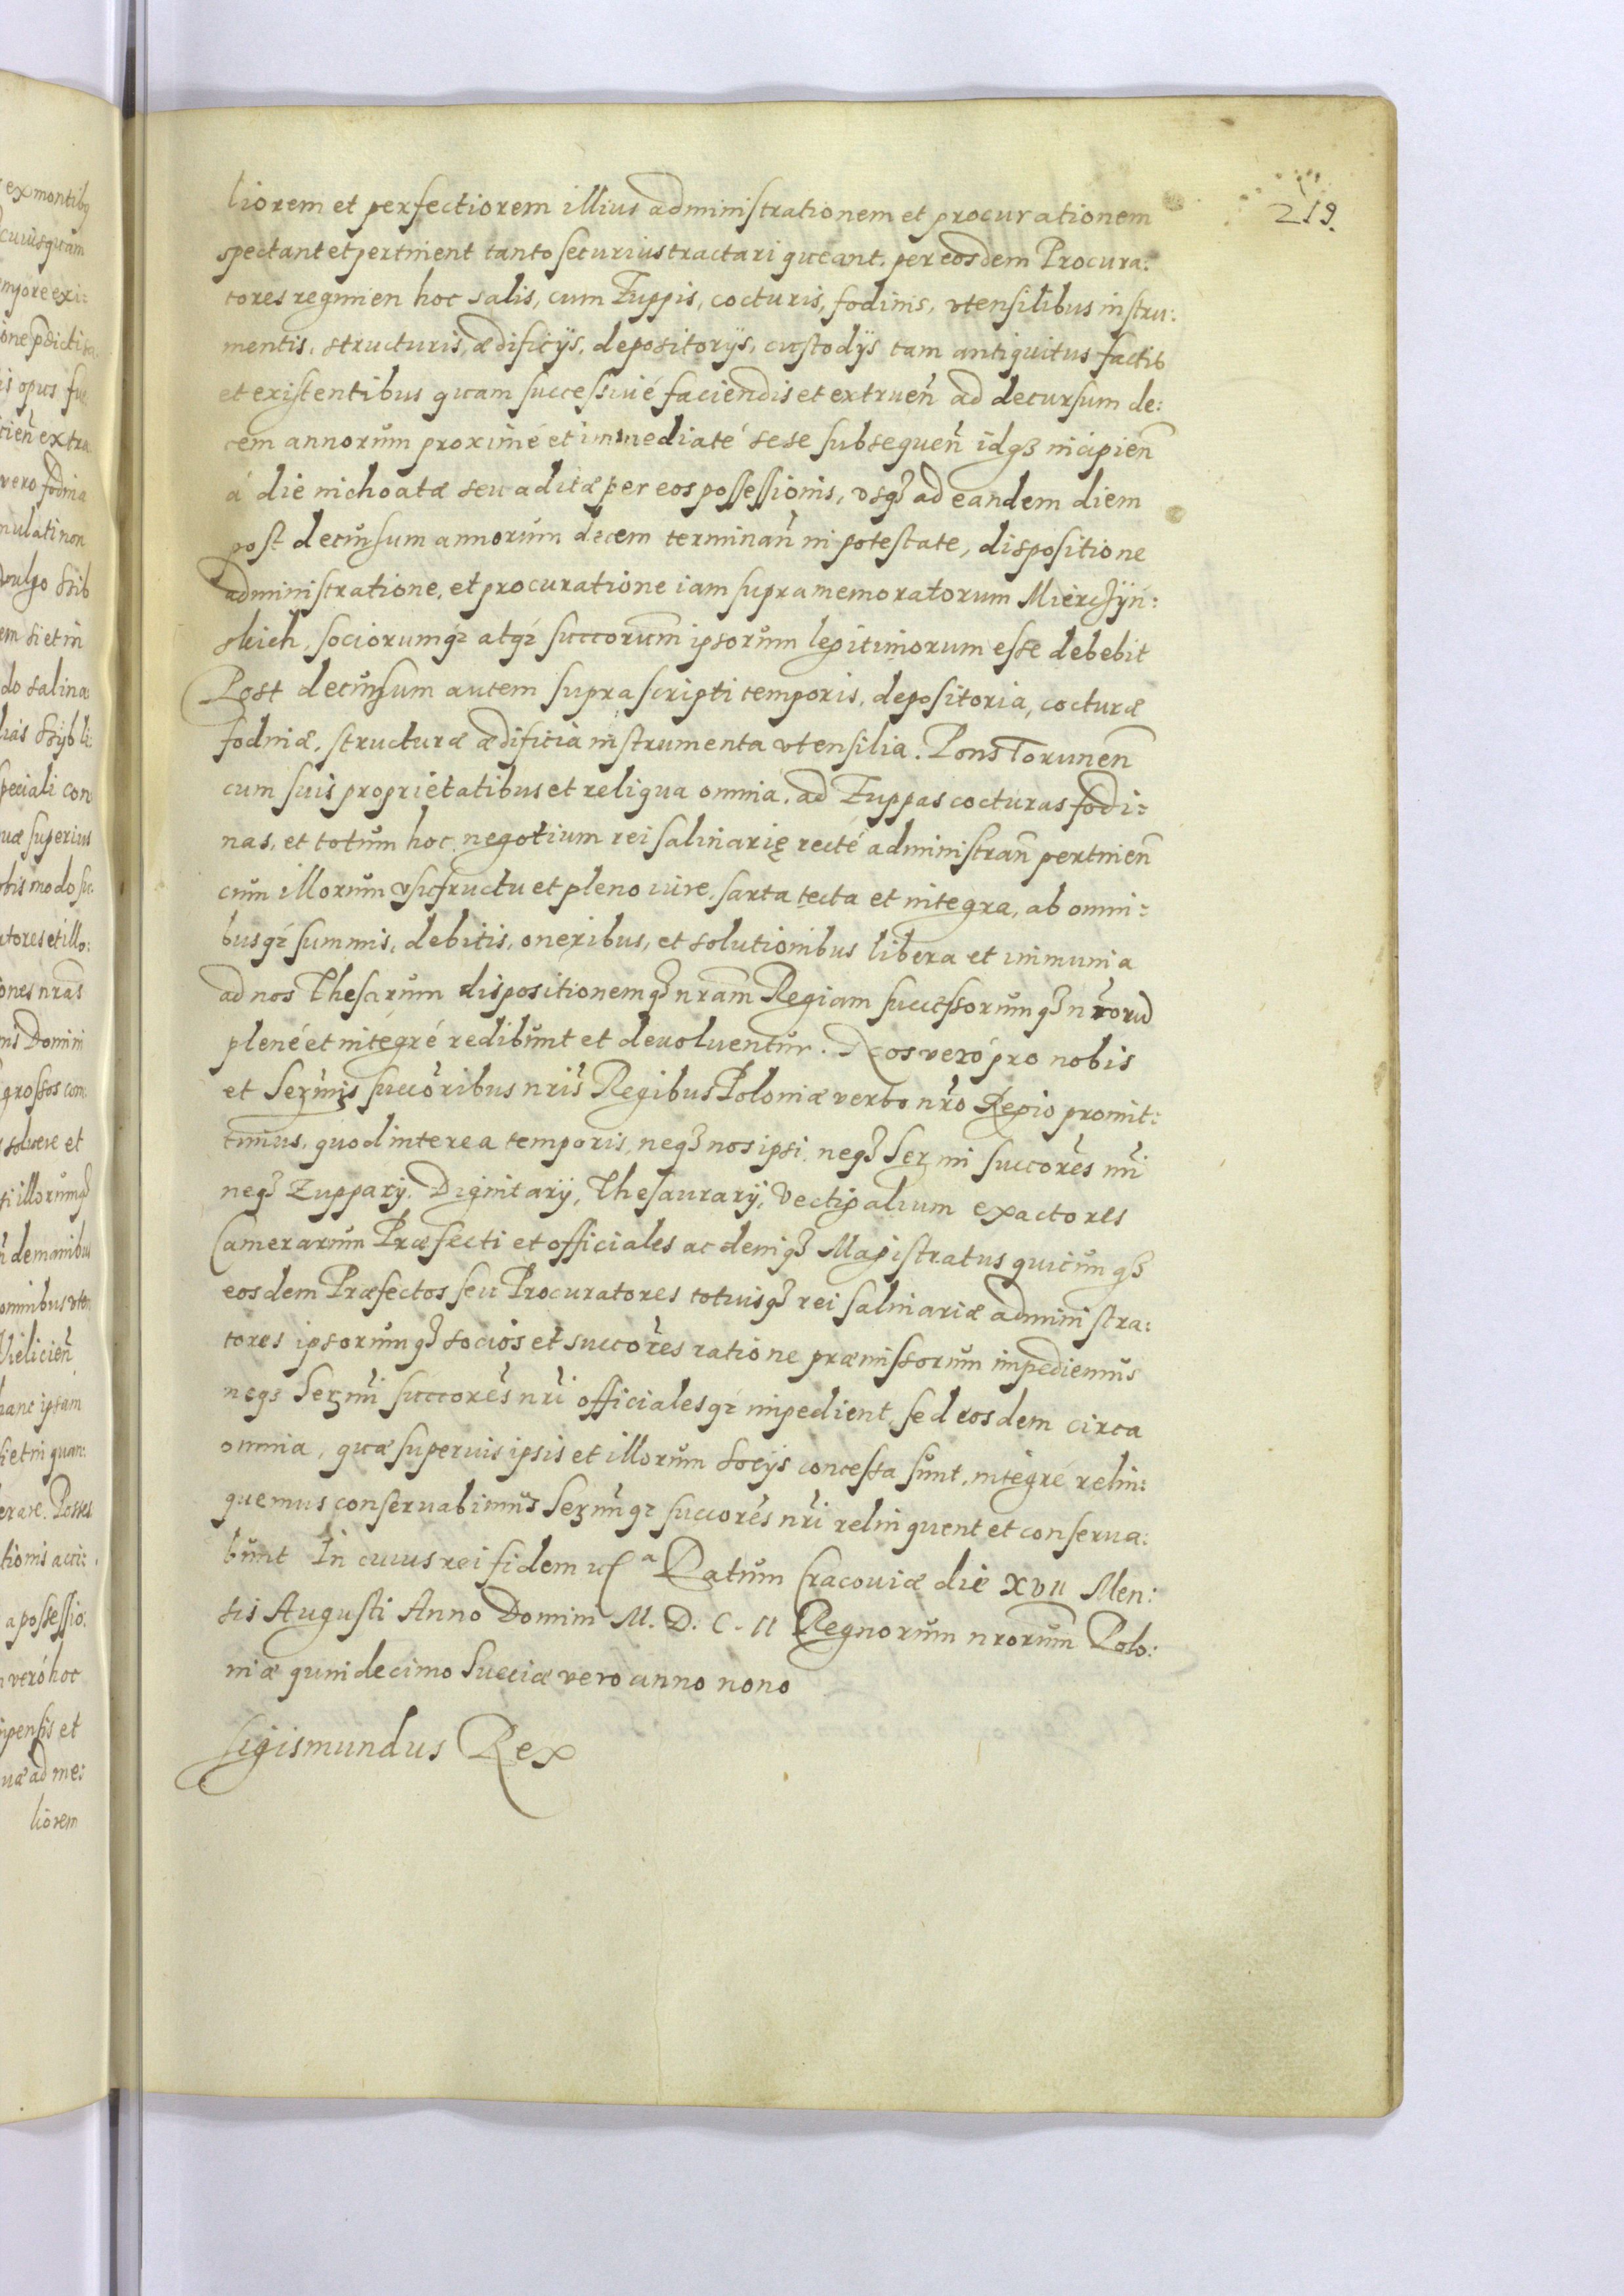 219
liorem et perfectiorem illius administrationem et procurationem
spectant et pertinent tanto securius tractari queant, per eosdem Procura:
tores regimen hoc salis, cum Zuppis, cocturis, fodinis, vtensilibus instru:
mentis, structuris, ædificijs, depositorijs, custodijs tam antiquitus factis
et existentibus quam successiué faciendis et extruen̄ ad decursum de:
cem annorum proximé et immediaté sese subsequen̄ idqȝ incipien̄
á die inchoatæ seu aditæ per eos possessionis, vsqȝ ad eandem diem
post decursum annorum decem terminan̄ in potestate, dispositione
administratione, et procuratione iam supra memoratorum Mierczÿn:
skich, sociorumqȝ atqȝ succorum ipsorum legitimorum esse debebit
Post decursum autem supra scripti temporis, depositoria, cocturæ
fodinæ, structuræ ædificia instrumenta vtensilia. Pons Torunen̄
cum suis proprietatibus et reliqua omnia, ad Zuppas cocturas fodi:
nas, et totum hoc negotium rei salinarię recté administran̄ pertinen̄
cum illorum vsufructu et pleno iure, sarta tecta et integra, ab omni:
busqȝ summis, debitis, oneribus, et solutionibus libera et immunia
ad nos Thesarum dispositionemqȝ nr̄am Regiam successorumqȝ nr̄oru
plené et integré redibunt et deuoluentur. Nos veró pro nobis
et Serm̄is succōribus nr̄is Regibus Poloniæ verbo nr̄o Regio promit:
timus, quod interea temporis, neqȝ nos ipsi, neqȝ Serm̄i succōres nr̄i
neqȝ Zupparij, Dignitarij, Thesaurarij, Vectigalium exactores
Camerarum Præfecti et officiales ac deniqȝ Magistratus quicunqȝ
eosdem Præfectos seu Procuratores totiusqȝ rei salinariæ administra:
tores ipsorumqȝ socios et succōres ratione præmissorum impediemus
neqȝ Serm̄i succōres nr̄i officialesqȝ impedient, sed eosdem circa
omnia, quæ superius ipsis et illorum Socijs concessa sunt, integré relin:
quemus conseruabimus Serm̄iqȝ succōres nr̄i relinquent et conserua:
bunt In cuius rei fidem Datum Cracouiæ die XVII Men:
sis Augusti Anno Domini M. D. C. II Regnorum nrorum Polo:
niæ quindecimo Sueciæ vero anno nono
Sigismundus Rex